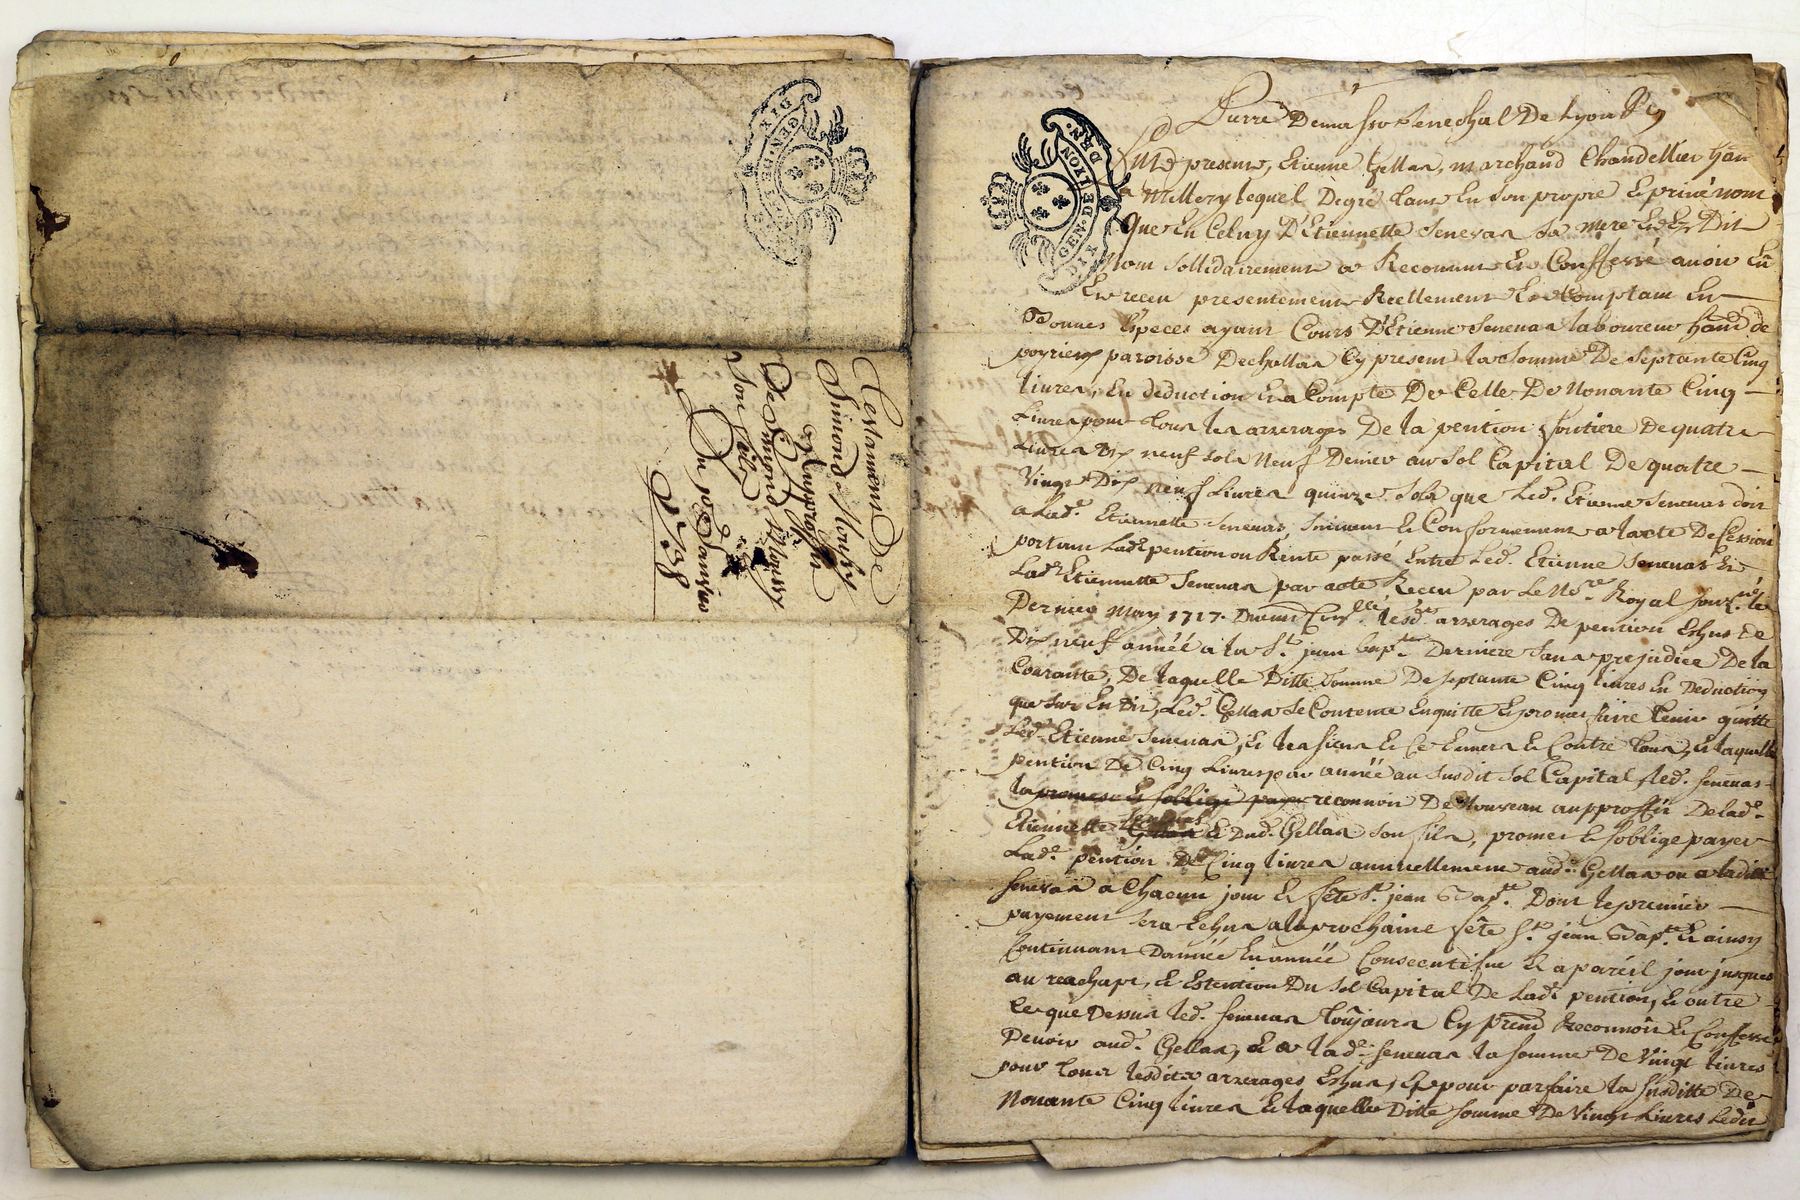 GEN·DE·LYON
DIX DRN.
Testament De
Simond
De Simond
Son fils
Du 1er Janvier
1738
GEN·DE·LYON
DIX DRN.
Senechal De Lyon
presens, Etienne Gellas, marchand Chandellier han
a Millery lequel De gré tant En Son propre & privé nom
que En Celuy D'Etiennette Senevas Sa mere
nom Sollidairement a Reconnu Et Confessé avoir Eû
Et receu presentement Reellement Et Comptant En
Bonnes Especes ayant Cours D'Etienne Senevas laboureur hand de
paroisse De Cy present la Somme De Septante Cinq
livres, En deduction Et a Compte De Celle De Nonante Cinq
Livres pour tous les arrerages De la pention fontiere De quatre
Livres Dix neuf Sols Neuf Denier au Sol Capital De quatre
Vingt Dix neuf Livres quinze Sols que Led. Etienne Senevas doit
a Lad.e Etiennette Senevas Suivant & Conformement a lacte De Cession
portant Lad.e pention ou Rente passé Entre Led. Etienne Senevas Et
Lad.e Etiennette Senevas par acte Receu par Le No.re Royal
Dernier May 1717. lesd. arrerages De pention Eshus de
Dix neuf année a la S.t jean bap.te Derniere Sans prejudice De la
Courante, De laquelle Ditte Somme De Septante Cinq livres En Deduction
que Sus En Dit, Led. Gellas Se Contente En quitte & promet faire tenir quitte
Led. Etienne Senevas, & les Siens & Contre tous, & laquelle
pention De Cinq Livres par année au Susdit Sol Capital led. Senevas
la promese & Soblige payer reconnoit De Nouveau au proffit De lad.e
Etiennette Senevas & Dud. Gellas Son fils, promet & Soblige payer
Lad.e pention De Cinq livres annuellement aud. Gellas ou a laditte
Senevas a Chacun jour & fête S.t jean Bap.te Dont le premier
payement Sera Eshus a la prochaine fête S.t jean Bap.te & ainsy
Continuant Dannée En année Consecutifue & a pareil jour jusques
au reachapt, & Estention Du Sol Capital De Lad.e pention, & outre
Ce que Dessus led. Senevas toûjours Cy reconnoit & Confesse
Devoir aud. Gellas, & a lad.e Senevas la Somme De Vingt livres
pour tous lesdits arrerages Eshus, & pour parfaire la Susditte De
Nonante Cinq livres & laquelle Ditte Somme De Vingt Livres Ledit